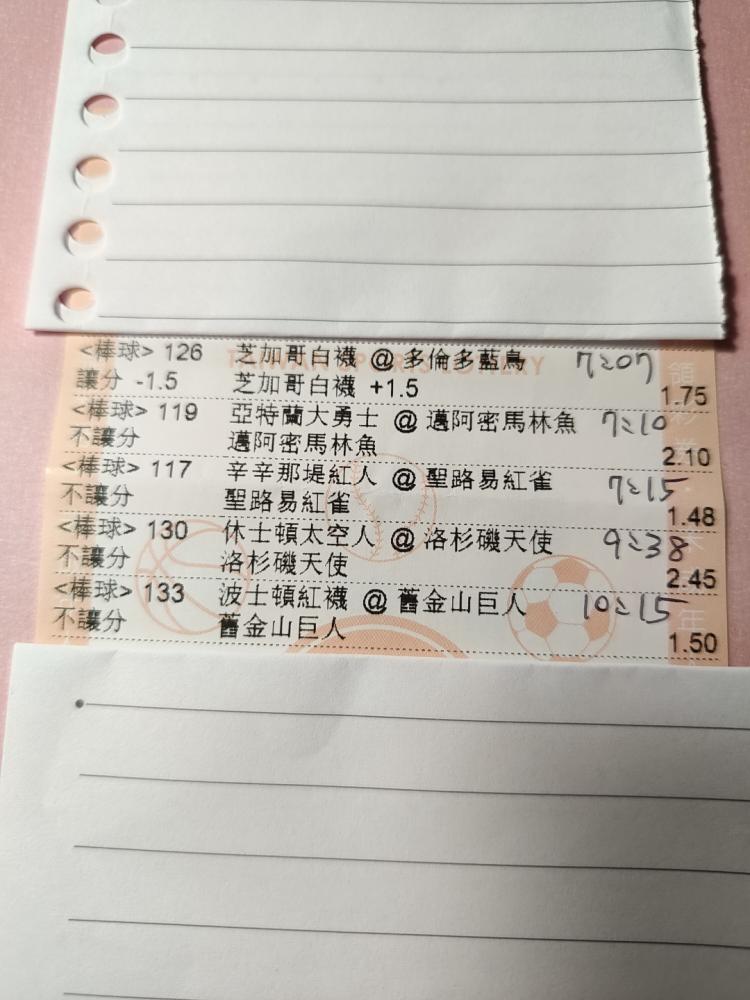 <棒球> 126 芝加哥白襪 @ 多倫多藍鳥 7:07
TAIWAN SPORTS LOTTERY
讓分 -1.5 芝加哥白襪 +1.5 1.75
<棒球> 119 亞特蘭大勇士 @ 邁阿密馬林魚 7:10
不讓分 邁阿密馬林魚 2.10
<棒球> 117 辛辛那堤紅人 @ 聖路易紅雀 7:15
不讓分 聖路易紅雀 1.48
<棒球> 130 休士頓太空人 @ 洛杉磯天使 9:38
不讓分 洛杉磯天使 2.45
<棒球> 133 波士頓紅襪 @ 舊金山巨人 10:15
不讓分 舊金山巨人 1.50